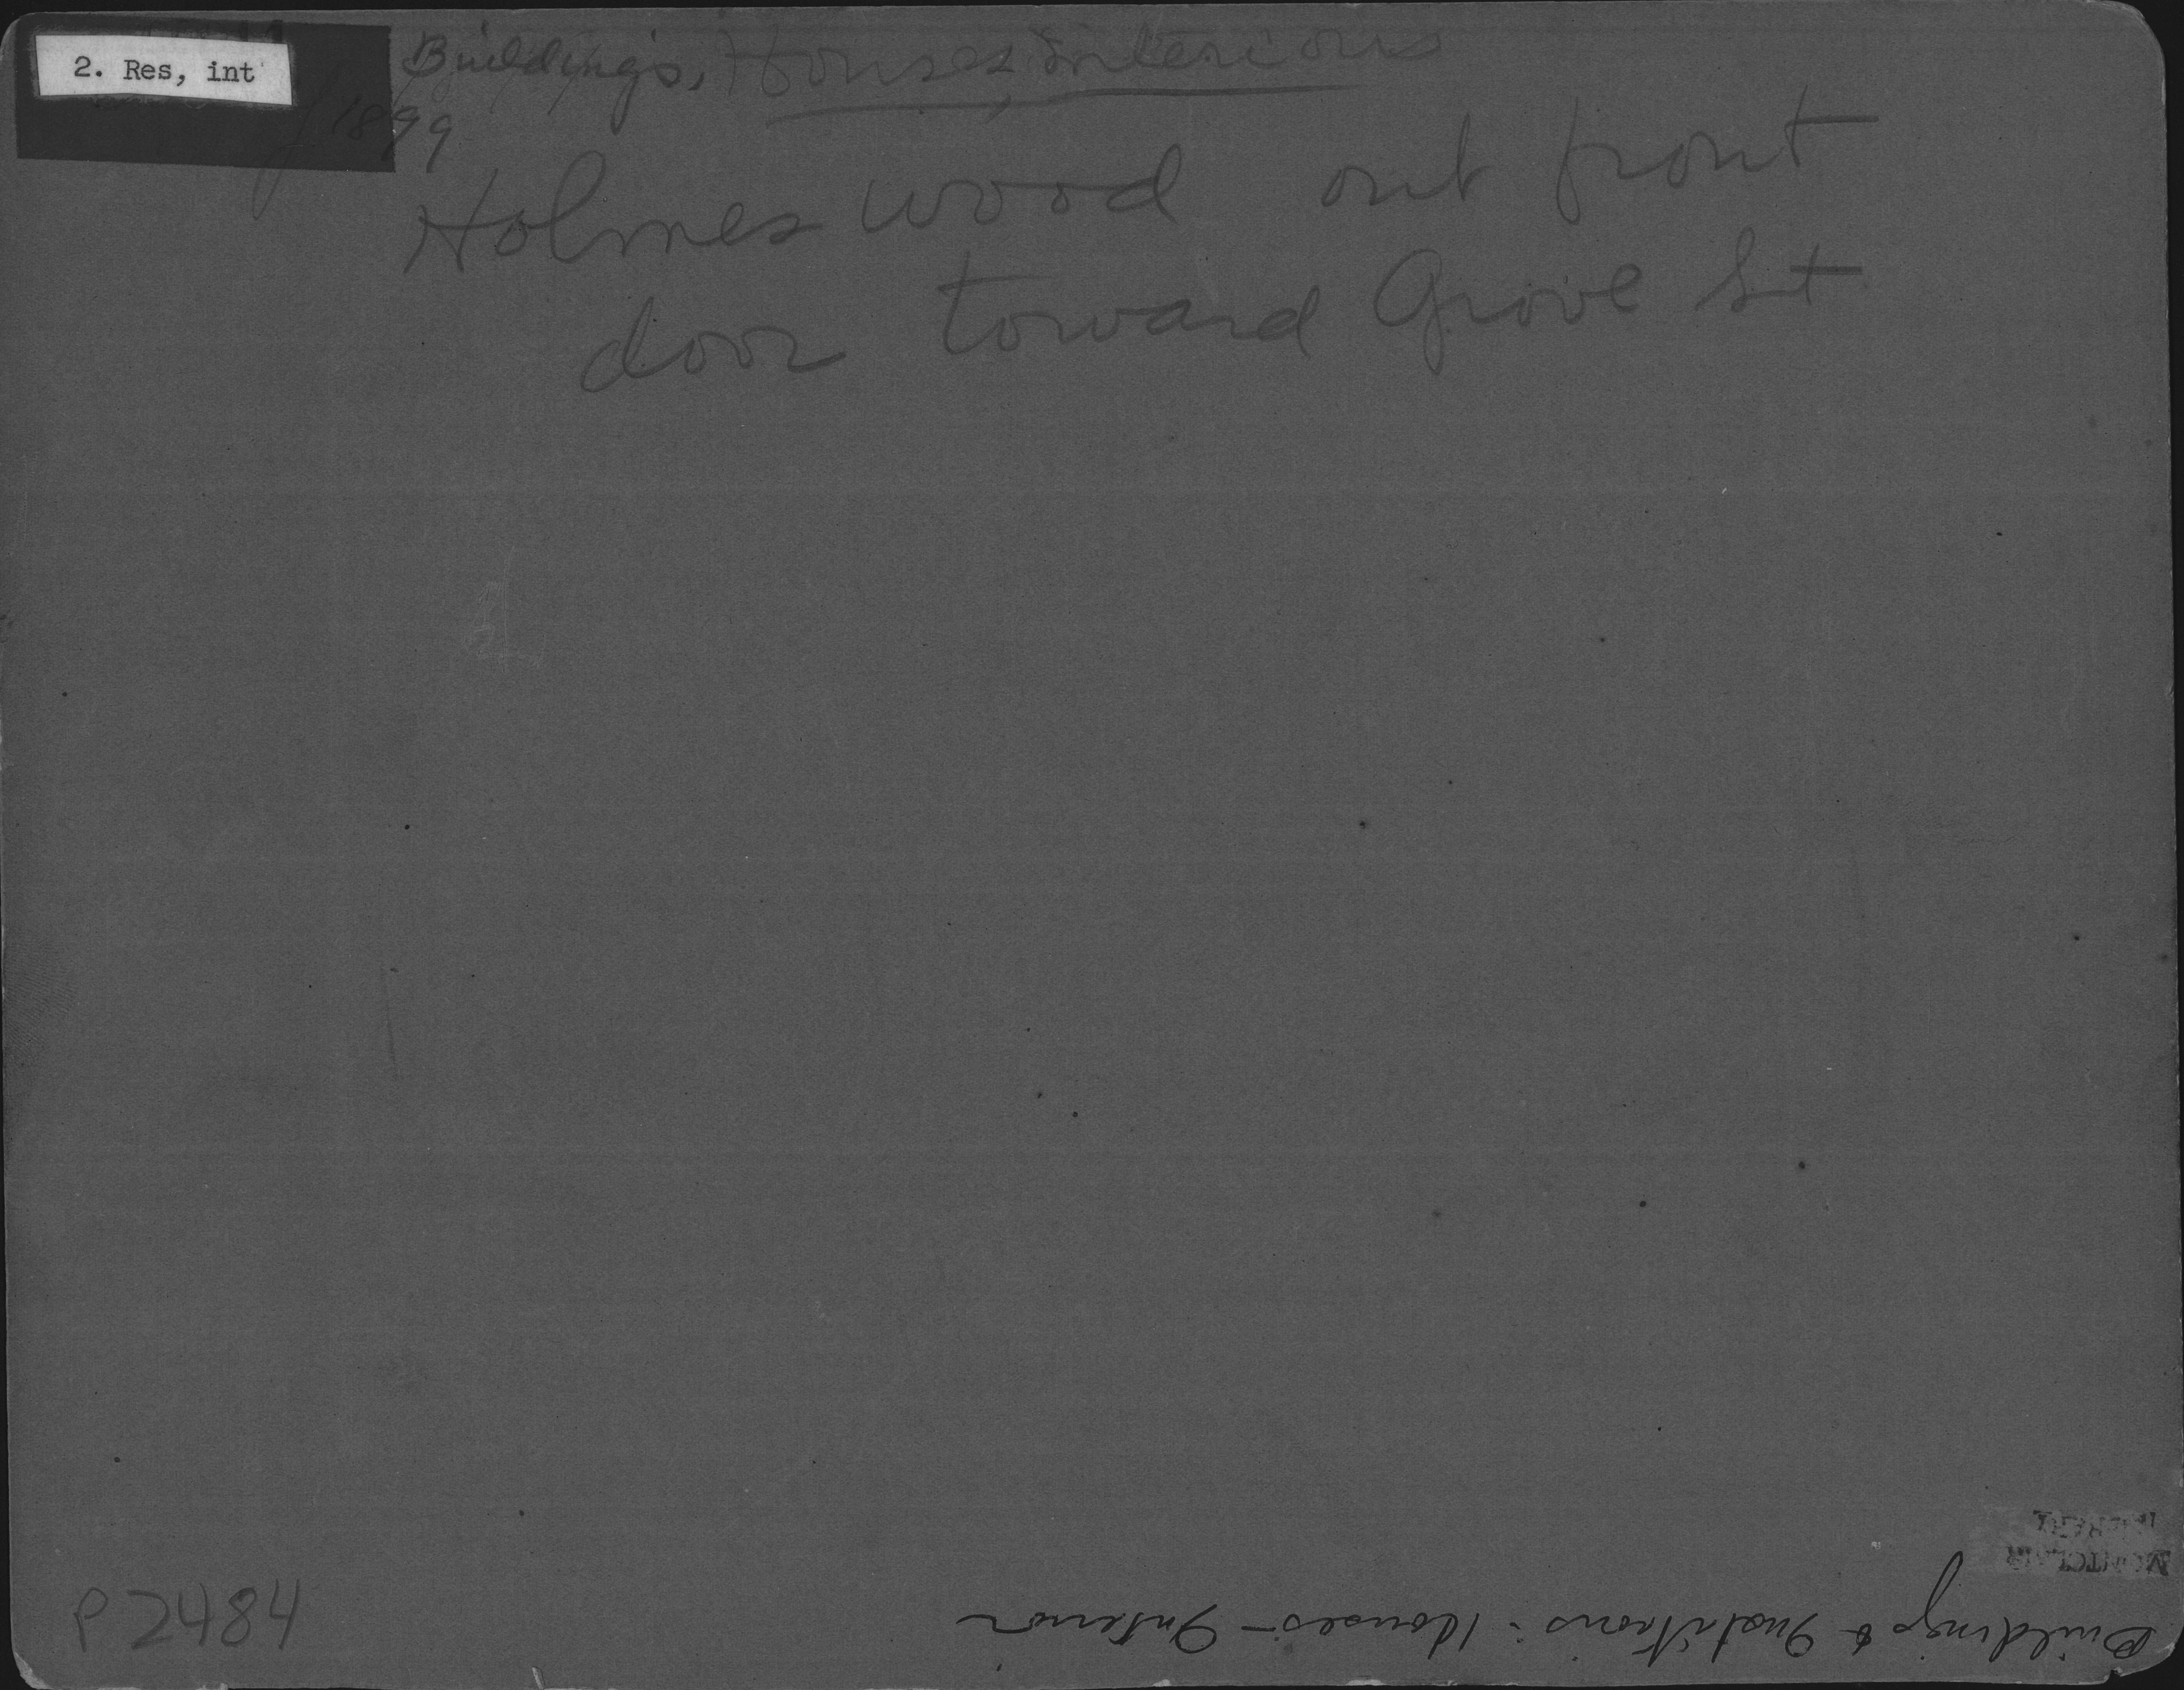 2. Res, int
Buildings, Houses, Interiors
1899
Holmeswood out front
door toward Grove St
P2484
MONTCLAIR
LIBRARY
Buildings & Institutions: Houses - Interior